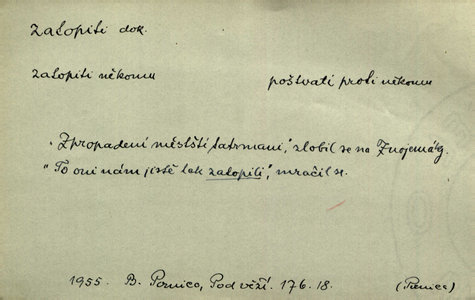 zatopiti dok.
zatopiti někomu poštvati proti někomu
"Zpropadení městští tatrmani," zlobil se na Znojemáky.
"To oni nám jistě tak zatopili," mračil se.
1955. B. Pernica, Pod věží. 176.18. (Pernica)